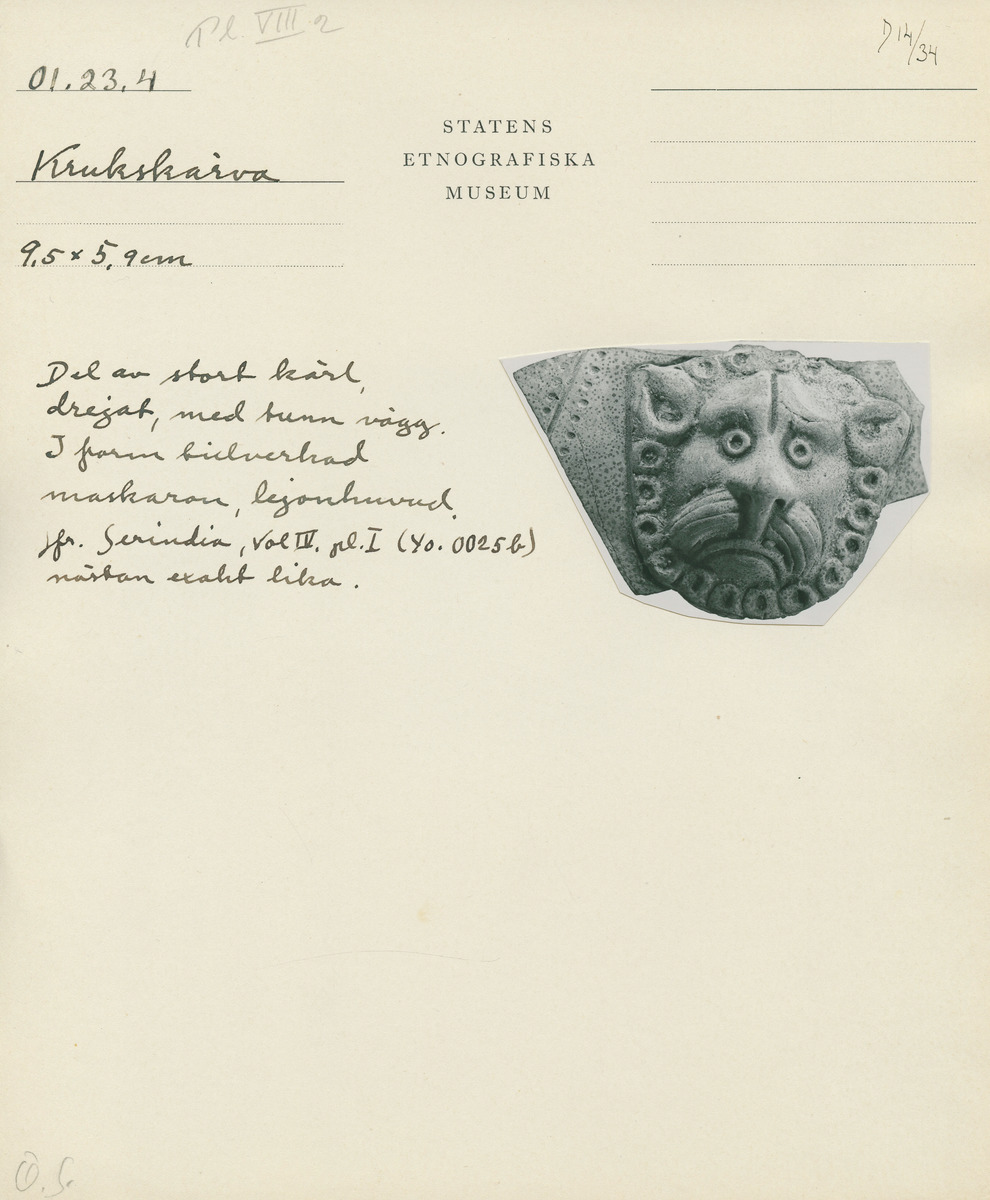 Pl. VIII 2
D 14/34
01.23.4
STATENS
ETNOGRAFISKA
MUSEUM
Krukskärva
9,5 x 5,9 cm
Del av stort kärl,
drejat, med tunn vägg.
I form tillverkad
maskaron, lejonhuvud.
jfr. Serindia, Vol IV. pl. I (Yo. 0025 b)
nästan exakt lika.
Ö. S.